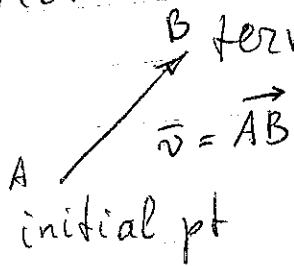 B
v̅ = A⃗B⃗
A
initial pt